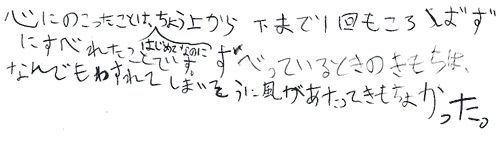 心にのこったことは、ちょう上から下まで1回もころばず
にすべれたことです。はじめてなのに すべっているときのきもちは、
なんでもわすれてしまいそうに風があたってきもちよかった。